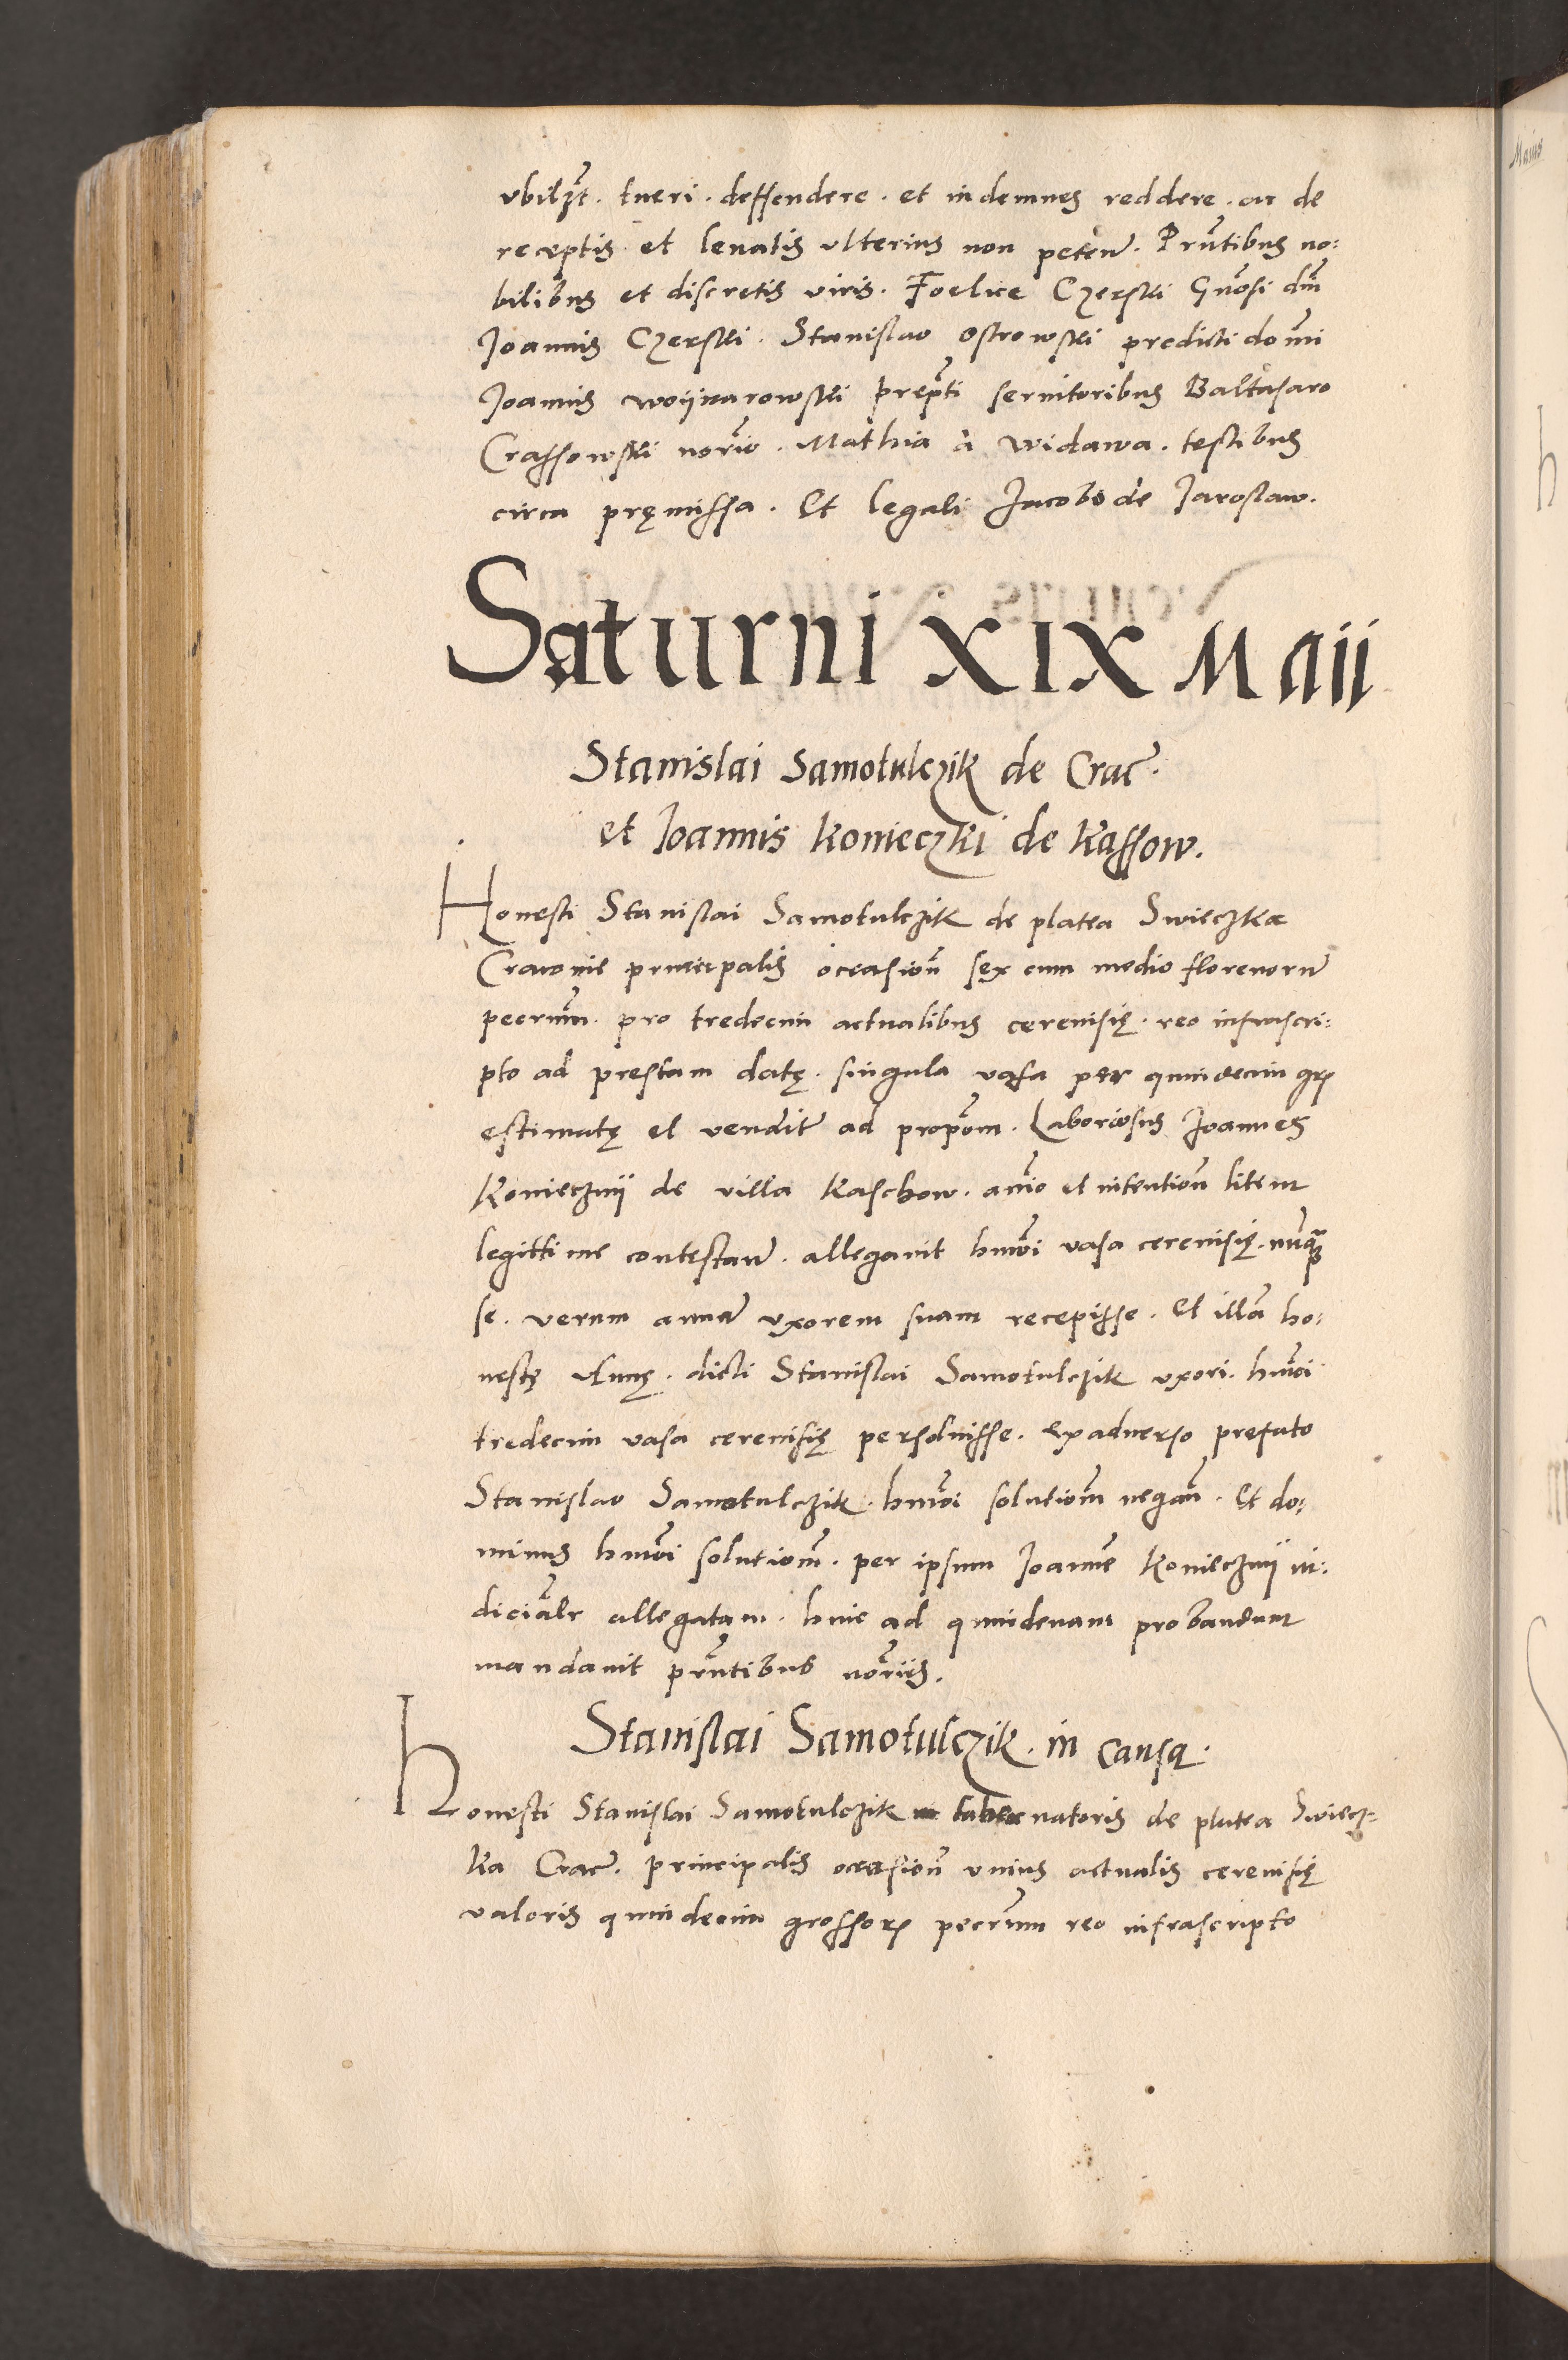 vbilzt. tueri. deffendere. et indemnes reddere. ac de
receptis et leuatis vlterius non petere. Pruntibus no:
bilibus et discretis viris. Foelice Czerski Gnosi dni
Joannis Czerski. Stanislao ostrowski predicti domi
Joannis woijnarowski prepti seruitoribus Baltasaro
Crassowski norio. Mathia à widawa. testibus
circa pręmissa. Et legali Jacobo de Jaroslaw.
Saturni XIX Maii
Stanislai Samotulczik de Crac.
et Joannis Konieczki de Kassow.
Honesti Stanislai Samotulczik de platea Swieczka
Cracouie principalis occasion sex cum medio florenoru
pecrum. pro tredecim actualibus cereuisię. reo infrascri:
pto ad prestam datę. singula vasa per quindecim gr
estimatę et vendit ad propom. Laboriosus Joannes
Koniecznij de villa Kaschow. anio et intention litem
legittime contestan. allegauit hmoi vasa cereuisię. nunqua
se. verum anna vxorem suam recepisse. Et illa ho:
nestę Annę. dicti Stanislai Samotulczik vxori. hmoi
tredecim vasa cereuisię persoluisse. ex aduerso prefato
Stanislao Samotulczik. hmoi solutiom negan. Et do:
minus hmoi solutiom. per ipsum Joanne Koniecznij iu:
dicialr allegatam. huic ad quindenam probandum
mandauit pruntibus noriis.
Stanislai Samotulczik. in causa.
honesti Stanislai Samotulczik tabernatoris de platea Swiecz:
ka Crac. principalis occasion vnius actualis cereuisię
valoris quindecim grossor pecrum reo infrascripto
Maius
h